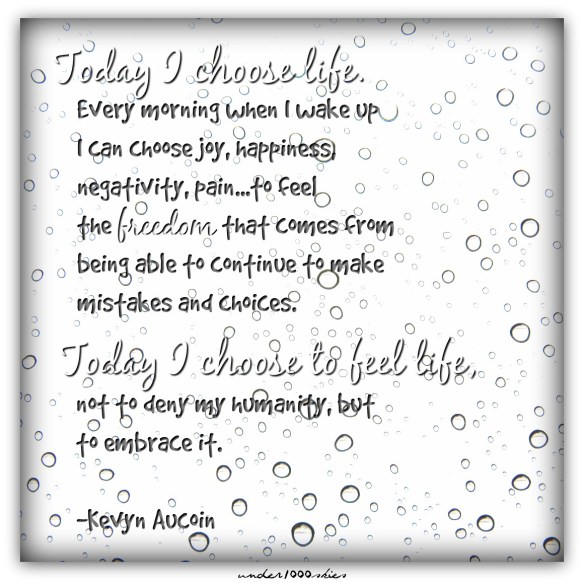 Today I choose life.
Every morning when I wake up
I can choose joy, happiness,
negativity, pain...to feel
the freedom that comes from
being able to continue to make
mistakes and choices.
Today I choose to feel life,
not to deny my humanity, but
to embrace it.
-Kevyn Aucoin
under1000skies